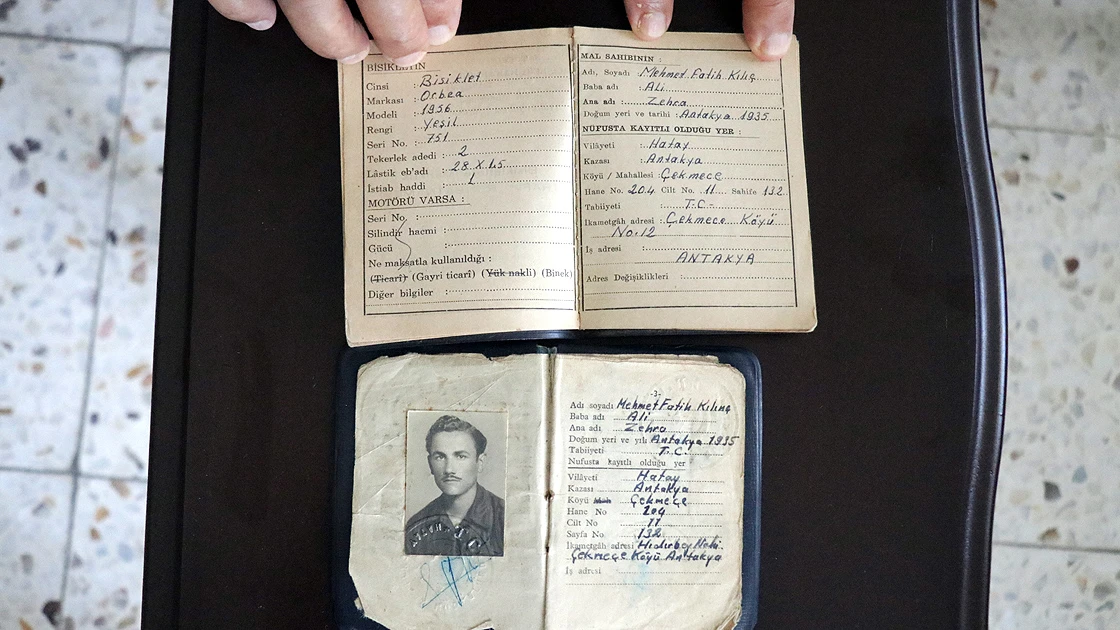 BİSİKLETİN
Cinsi : Bisiklet
Markası : Orbea
Modeli : 1956
Rengi : Yeşil
Seri No. : 751
Tekerlek adedi : 2
Lâstik eb'adı : 28.X.1.5
İstiab haddi : 1
MOTÖRÜ VARSA :
Seri No. :
Silindir hacmi :
Gücü :
Ne maksatla kullanıldığı :
(Ticarî) (Gayri ticarî) (Yük nakli) (Binek)
Diğer bilgiler :
MAL SAHIBININ :
Adı, Soyadı : Mehmet Fatih Kılınç
Baba adı : Ali
Ana adı : Zehra
Doğum yeri ve tarihi : Antakya 1935
NÜFUSTA KAYITLI OLDUĞU YER :
Vilâyeti : Hatay
Kazası : Antakya
Köyü / Mahallesi : Çekmece
Hane No. 204 Cilt No. 11 Sahife 132
Tabiiyeti : T.C.
İkametgâh adresi : Çekmece Köyü
No. 12
İş adresi
ANTAKYA
Adres Değişiklikleri :
-3-
Adı soyadı Mehmet Fatih Kılınç
Baba adı Ali
Ana adı Zehra
Doğum yeri ve yılı Antakya 1935
Tabiiyeti T.C.
Nufusta kayıtlı olduğu yer
Vilâyeti Hatay
Kazası Antakya
Köyü Çekmeçe
Hane No 204
Cilt No 11
Sayfa No 132
İkametgâh adresi Hıdırbey Mah.
Çekmeçe Köyü Antakya
İş adresi :